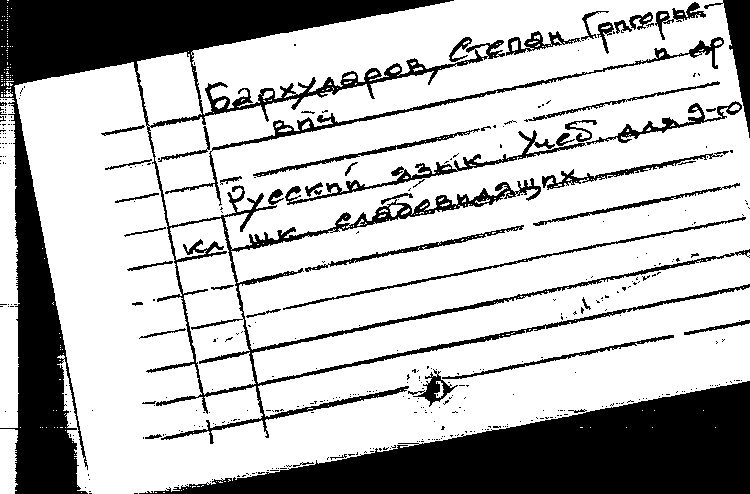 Бархударов, Степан Григорье-
вич и др.
Русский язык: Учеб. для 9-го
кл. шк. слабовидящих.